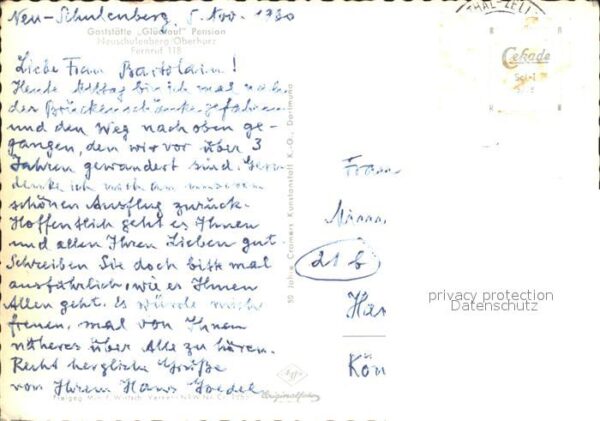 Neu-Schulenberg, 5. Nov. 1960
Gaststätte „Glückauf" Pension
Neuschulenberg/Oberharz
Fernruf 118
Liebe Frau
Heute Mittag bin ich mal nach
der Brückenschänke gefahren
und den Weg nach oben ge-
gangen, den wir vor über 3
Jahren gewandert sind. Gern
denke ich noch an unseren
schönen Ausflug zurück.
Hoffentlich geht es Ihnen
und allen Ihren Lieben gut.
Schreiben Sie doch bitte mal
ausführlich, wie es Ihnen
Allen geht. Es würde mich
freuen, mal von Ihnen
näheres über Alle zu hören.
Recht herzliche Grüße
von Ihrem Hans
50 Jahre Cramers Kunstanstalt K.-G., Dortmund
Cekade
Frau
21 b
Han
Kön
privacy protection
Datenschutz
Originalfoto